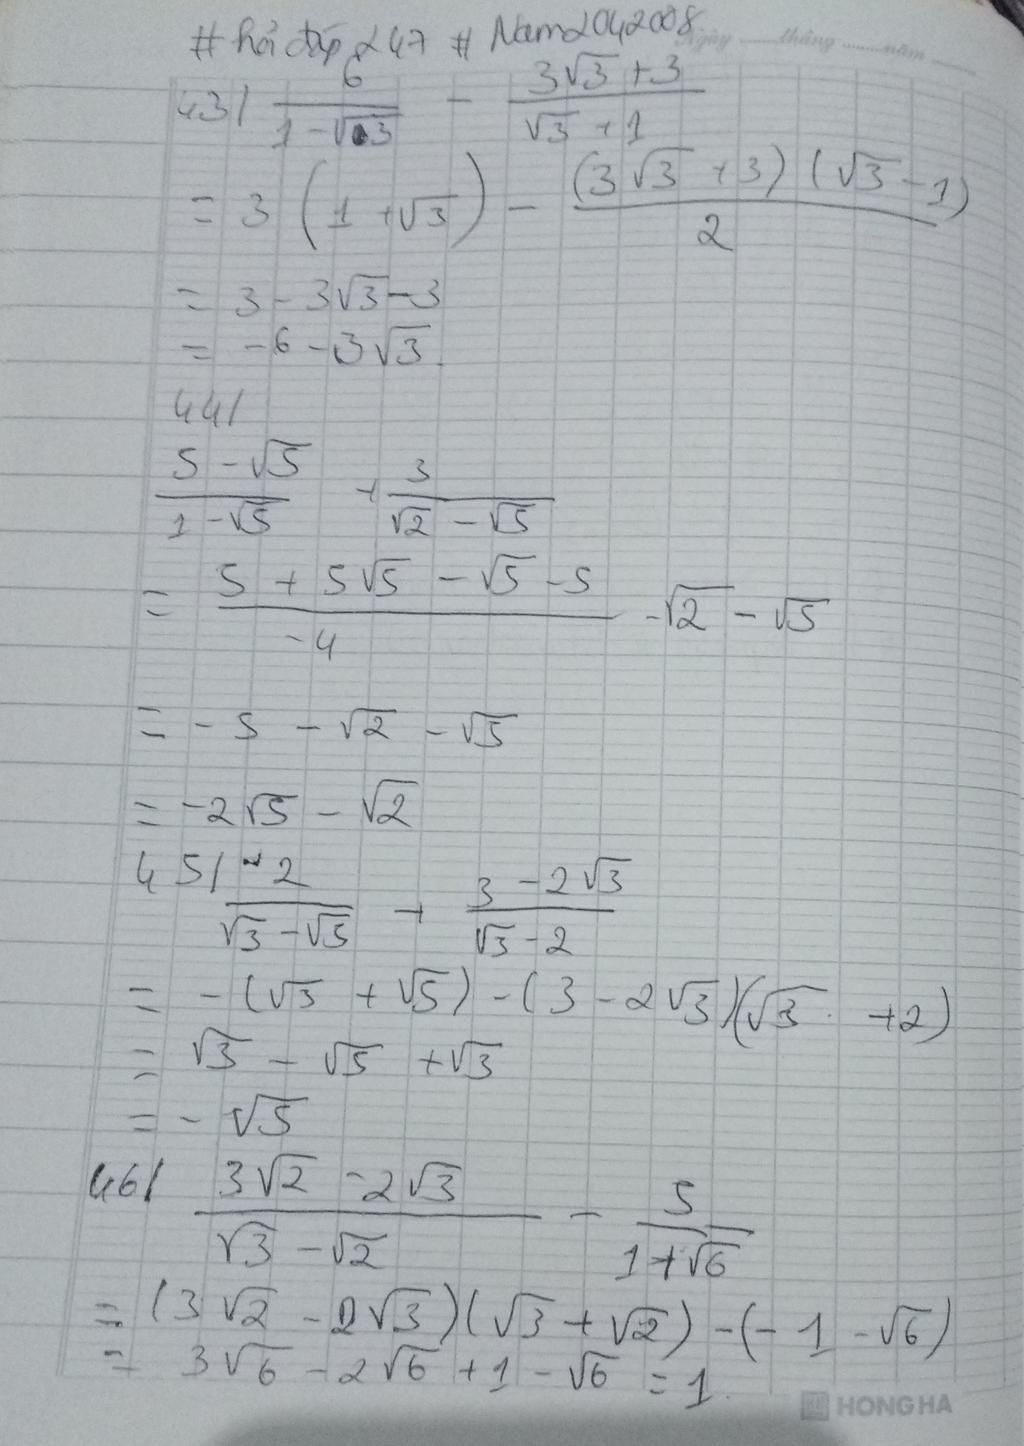 #hỏi đáp 247 # Nam2042008
Ngày ......tháng ......năm
43/ 6/(1-√3) - (3√3+3)/(√3+1)
= 3(1+√3) - (3√3+3)(√3-1)/2
= 3-3√3-3
= -6-3√3.
44/
(5-√5)/(1-√5) + 3/(√2-√5)
= (5+5√5-√5-5)/(-4) -√2-√5
= -5-√2-√5
= -2√5-√2
45/ -2/(√3-√5) + (3-2√3)/(√3-2)
= -(√3+√5)-(3-2√3)(√3+2)
= √3-√5+√3
= -√5
46/ (3√2-2√3)/(√3-√2) - 5/(1+√6)
= (3√2-2√3)(√3+√2)-(-1-√6)
= 3√6-2√6+1-√6=1.
HONG HA